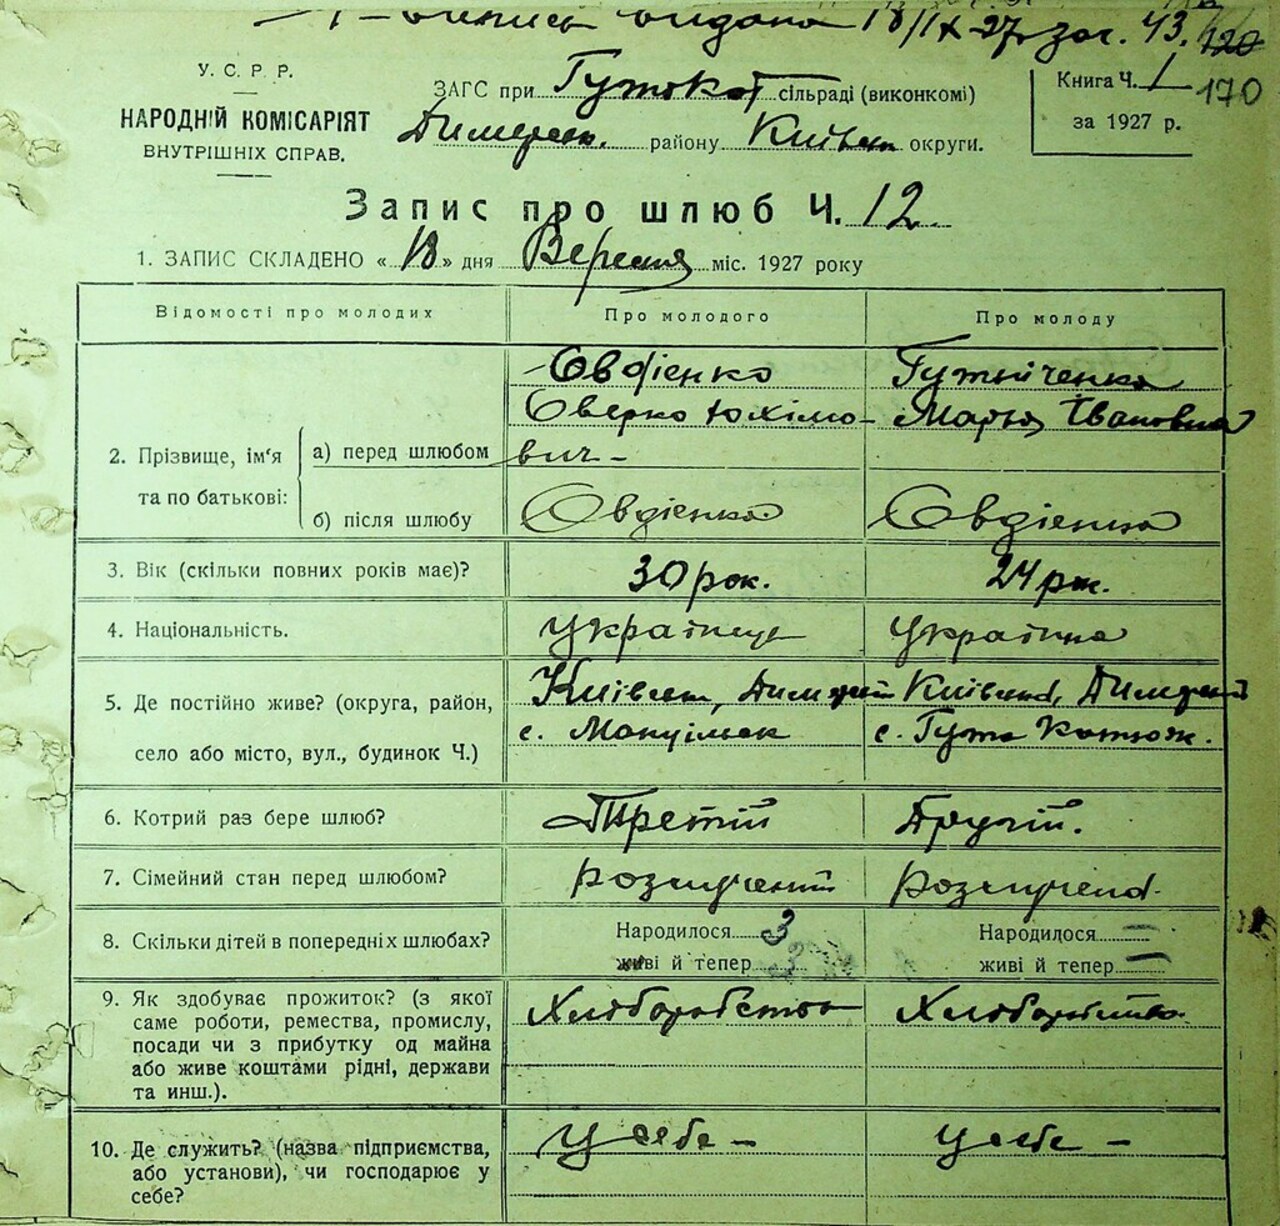 выпись выдана 18/IX-27 р. за ч. 43. 120
У. С. Р. Р.
НАРОДНІЙ КОМІСАРІЯТ
ВНУТРІШНІХ СПРАВ.
ЗАГС при Гутокат сільраді (виконкомі)
Димерськ. району Київськ округи.
Книга Ч. 1 170
за 1927 р.
Запис про шлюб Ч. 12
1. ЗАПИС СКЛАДЕНО «18» дня Вересня міс. 1927 року
Відомості про молодих Про молодого Про молоду
2. Прізвище, ім'я та по батькові:
а) перед шлюбом Овдієнко Гутніченко
Оверко Юхімо- Марья Івановна
вич-
б) після шлюбу Овдієнко Овдієнко
3. Вік (скільки повних років має)? 30 рок. 24 рок.
4. Національність. Українец Українка
5. Де постійно живе? (округа, район, Київськ, Димерськ Київськ, Димерськ
село або місто, вул., будинок Ч.) с. Мануільск с. Гута Катюж.
6. Котрий раз бере шлюб? Третій Другій.
7. Сімейний стан перед шлюбом? Розлучений Розлучена.
8. Скільки дітей в попередніх шлюбах? Народилося 3 Народилося —
живі й тепер 3 живі й тепер —
9. Як здобуває прожиток? (з якої Хлiборобство Хлiборобство.
саме роботи, ремества, промислу,
посади чи з прибутку од майна
або живе коштами рідні, держави
та инш.).
10. Де служить? (назва підприємства, У себе — У себе —
або установи), чи господарює у
себе?